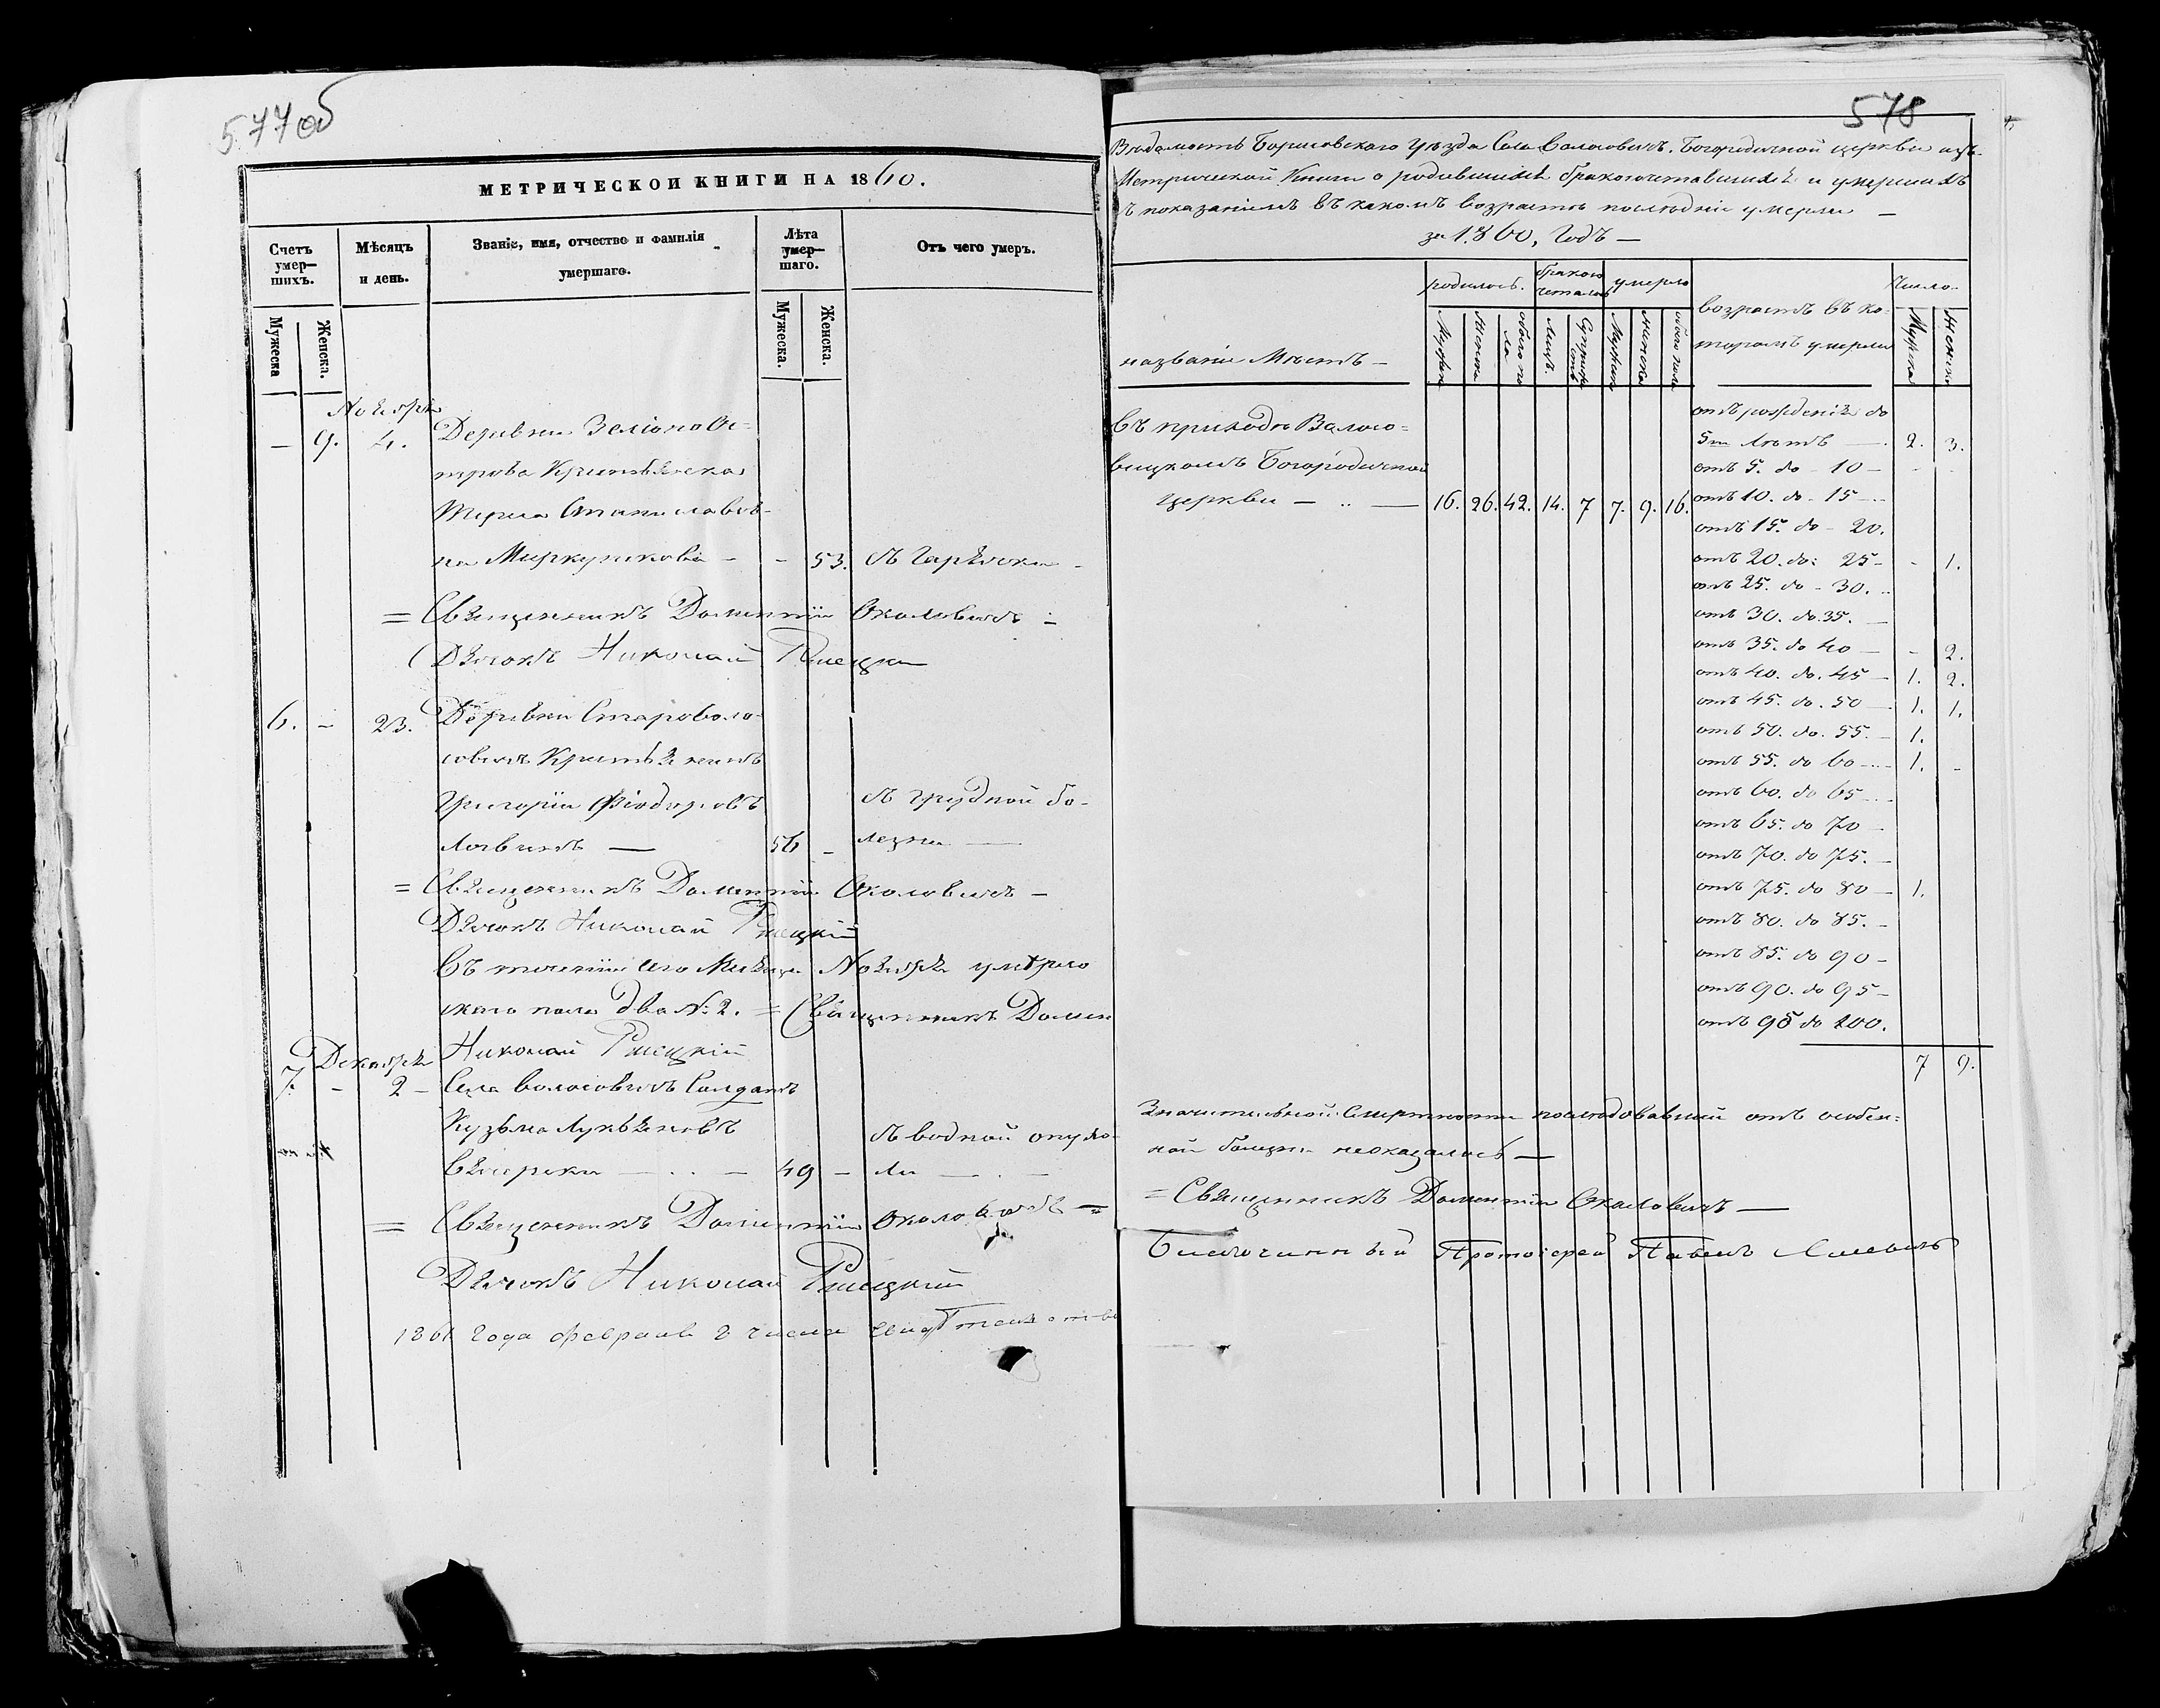 577об
МЕТРИЧЕСКОЙ КНИГИ НА 1860.
Счетъ умер—шихъ.
Мужеска
Женска.
Мѣсяцъ и день.
Званіе, имя, отчество и фамилія умершаго.
Лѣта умер—шаго.
Мужеска.
Женска.
Отъ чего умеръ.
Ноября
— 9. 4. Деревни Зеліоно Ос=
трова Крестьянска
Станиславов-
на - - 53. съ Гарячки -
= Священникъ Доментій Околовичъ =
Дячокъ Николай Ршецкій
6. - 23. Деревни Староволо-
совичъ Крестьянинъ
Григорій Фіодоровъ съ грудной бо-
Логвинъ — 56 - лезни —
= Священникъ Доментій Околовичъ —
Дячокъ Николай Ршецкій
Въ теченіи сего Месяца Ноября умерло
скаго пола два № 2. = Священникъ Домен
Николай Ршецкій
Декабря
7. - 2 - Села Волосовичъ Солдатъ
Кузьма Лукьяновъ съ водной опухо-
— 49 - ли —
= Священникъ Доментій Околовичъ =
Дячокъ Николай Ршецкій
1861 года февраля 2 числа
578
Вѣдомость Борисовскаго Уѣзда Села Волосовичъ Богородичной церкви изъ
Метрической Книги о родившихся бракосочетавшихся и умершихъ
съ показаніемъ въ какомъ возрасте последніе умерли —
за 1860, Годъ —
название Местъ —
родилось.
Мужска
Женска
обоего по
ла
бракосо
четалось
Лицъ.
Супруже
ствъ
умерло
Мужска
женска
обоего пола
возрастъ въ ко-
торомъ умерли
Число.
Мужска
Женска
въ приходе Волосо=
вицкомъ Богородичной
церкви — .. — 16. 26. 42. 14. 7 7. 9. 16.
отъ рожденія до
5ти летъ — 2. 3.
отъ 5. до - 10 - - -
отъ 10. до - 15 —
отъ 15. до - 20.
отъ 20. до: 25 - - 1.
отъ 25. до - 30. ..
отъ 30. до. 35. —
отъ 35. до 40 — - 2.
отъ 40. до. 45 — 1. 2.
отъ 45. до. 50 — 1. 1.
отъ 50. до. 55. - 1.
отъ 55. до 60 - 1. -
отъ 60. до 65 -
отъ 65. до 70 -
отъ 70. до 75. -
отъ 75. до 80 - 1.
отъ 80. до 85. -
отъ 85. до 90 -
отъ 90. до 95 -
отъ 95 до 100.
7 9.
Значительной Смертности последовавшей отъ особен=
ной болезни неоказалось —
= Священникъ Доментій Околовичъ —
Благочинный Протоіерей Павелъ